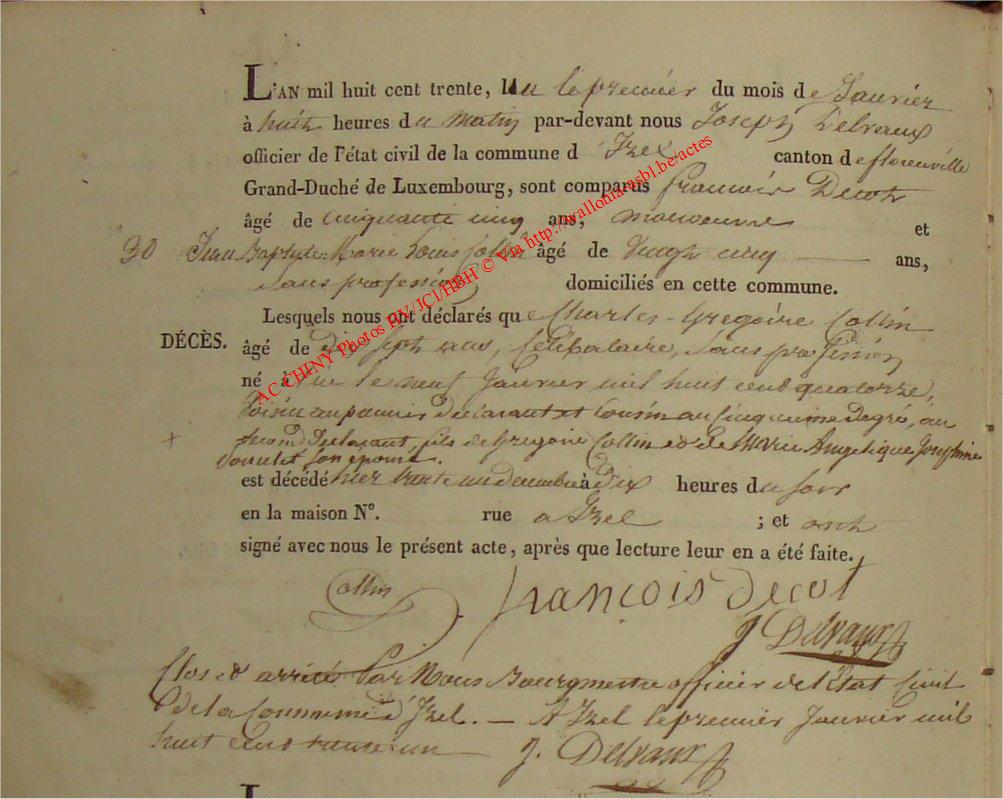 L'AN mil huit cent trente, un le premier du mois de Janvier
à huit heures du matin par-devant nous Joseph Delvaux
officier de l'état civil de la commune d'Izel canton de florenville
Grand-Duché de Luxembourg, sont comparus françois Decot
âgé de cinquante cinq ans, manoeuvre et
30 Jean Baptiste Marie Louis Collin âgé de vingt cinq ans,
Sans profession domiciliés en cette commune.
Lesquels nous ont déclarés que Charles-Gregoire Collin
DÉCÈS. âgé de dix sept ans, Celibataire, sans profession
né à Izel le neuf Janvier mil huit cent quatorze,
Voisin au premier déclarant et Cousin au Cinquieme degré, au
+ second Declarant, fils de Gregoire Collin et de Marie Angelique Josephine
son épouse.
est décédé hier trente un decembre à dix heures du soir
en la maison N°. rue a Izel ; et ont
signé avec nous le présent acte, après que lecture leur en a été faite.
Collin françois Decot
J Delvaux
Clos et arrêté Par Nous Bourgmestre officier de l'État Civil
de la Commune d'Izel. — A Izel le premier Janvier mil
huit cent trente un J. Delvaux
AC CHINY Photos PV/JCl/HBH © via http://wallonia-asbl.be/actes
L